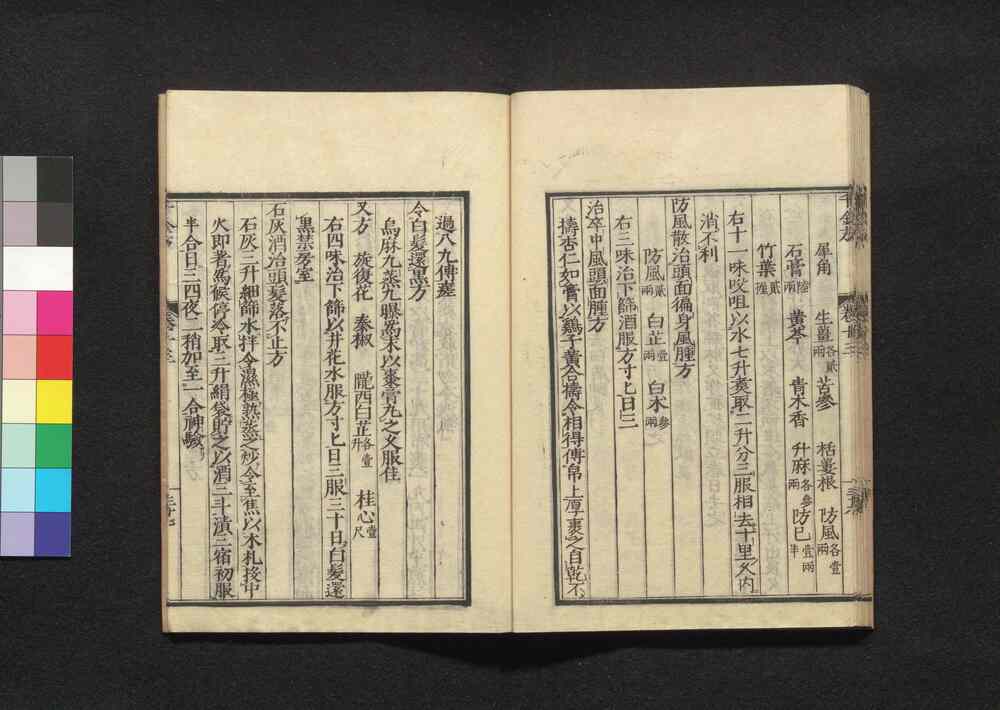 犀角 生薑各貳兩 苦參 栝蔞根 防風各壹兩
石膏陸兩 黃芩 青木香 升麻各參兩 防巳壹兩半
竹葉貳握
右十一味㕮咀以水七升煑取二升分三服相去十里久內
消不利
防風散治頭面徧身風腫方
防風貳兩 白芷壹兩 白术參兩
右三味治下篩酒服方寸匕日三
治卒中風頭面腫方
擣杏仁如膏以鷄子黃合擣令相得傅帛上厚裹之自乾不
過八九傅差
令白髮還黑方
烏麻九蒸九曝爲末以棗膏丸之久服佳
又方 旋復花 秦椒 隴西白芷各壹升 桂心壹尺
右四味治下篩以井花水服方寸匕日三服三十日白髮還
黑禁房室
石灰酒治頭髮落不止方
石灰三升細篩水拌令濕極熟蒸之炒令至焦以木札投中
火即著爲候停冷取三升絹袋貯之以酒三斗漬三宿初服
半合日三四夜二稍加至一合神驗